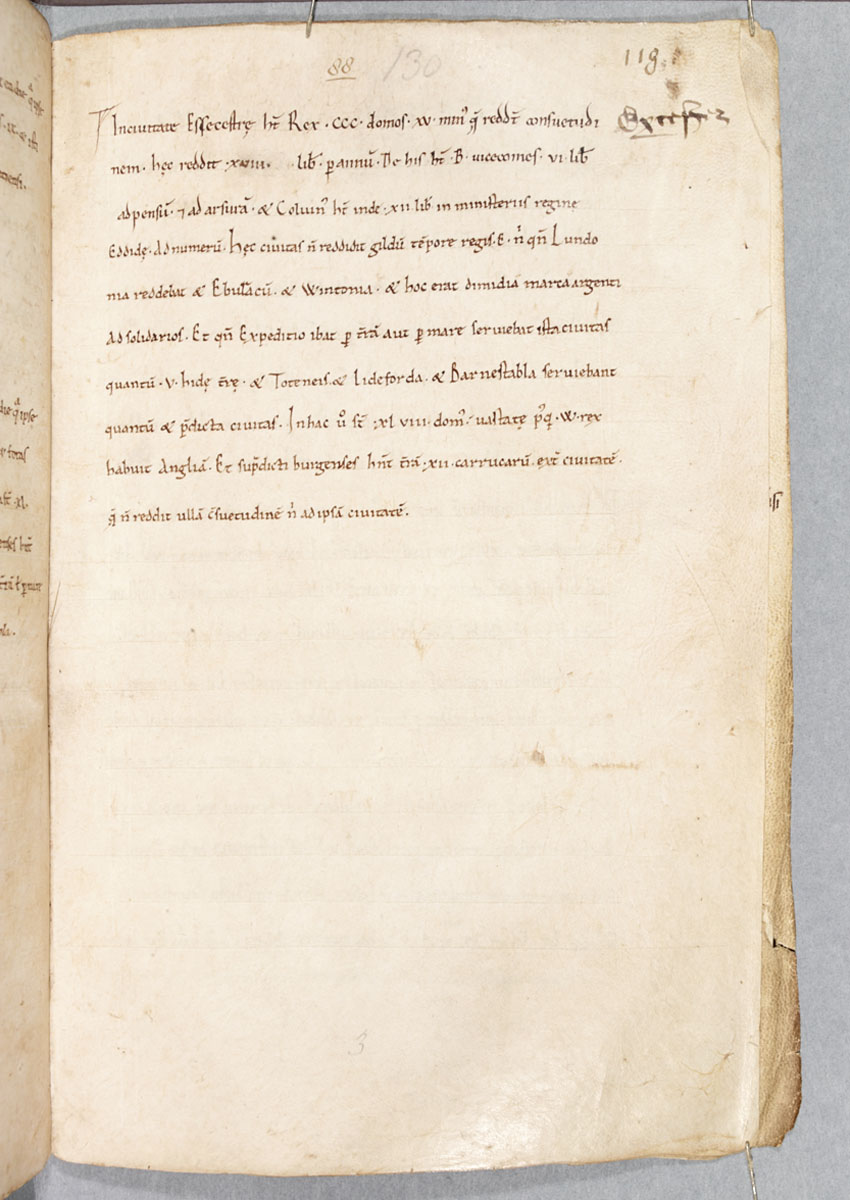 88 130 119
In ciuitate Essecestrę ht̄ Rex · ccc · domos · xv · min᷒ q̄ reddt̄ consuetudi
Excester
nem · hęc reddit · xviii · lib̄ · p annū · De his ht̄ · B · uicecomes · vi · lib̄
ad pensū · ⁊ ad arsurā · & Coluin᷒ ht̄ inde · xii lib̄ in ministeriis regine
Eddidę · ad numerū · Hęc ciuitas n̄ reddidit gildū tēpore regis · E · n̄ qn̄ Lundo
nia reddebat & Ebulacū · & Wintonia · & hoc erat dimidiā marca argenti
ad solidarios · Et qn̄ Expeditio ibat p t̄rā aut p mare seruiebat ista ciuitas
quantū · v · hidę t̄rę · & Toteneis · & Lideforda · & Barnestabla seruiebant
quantū & p̄dicta ciuitas · In hac ů st̄ · xl viii · dom᷒ uastatę p᷒q̄ · W · rex
habuit Angliā · Et sup̄dicti burgenses hn̄t t̄rā · xii · carrucarū · ext̄ ciuitatē ·
q̄ n̄ reddit ullā c̄suetudinē n̄ ad ipsā ciuitatē ·
3